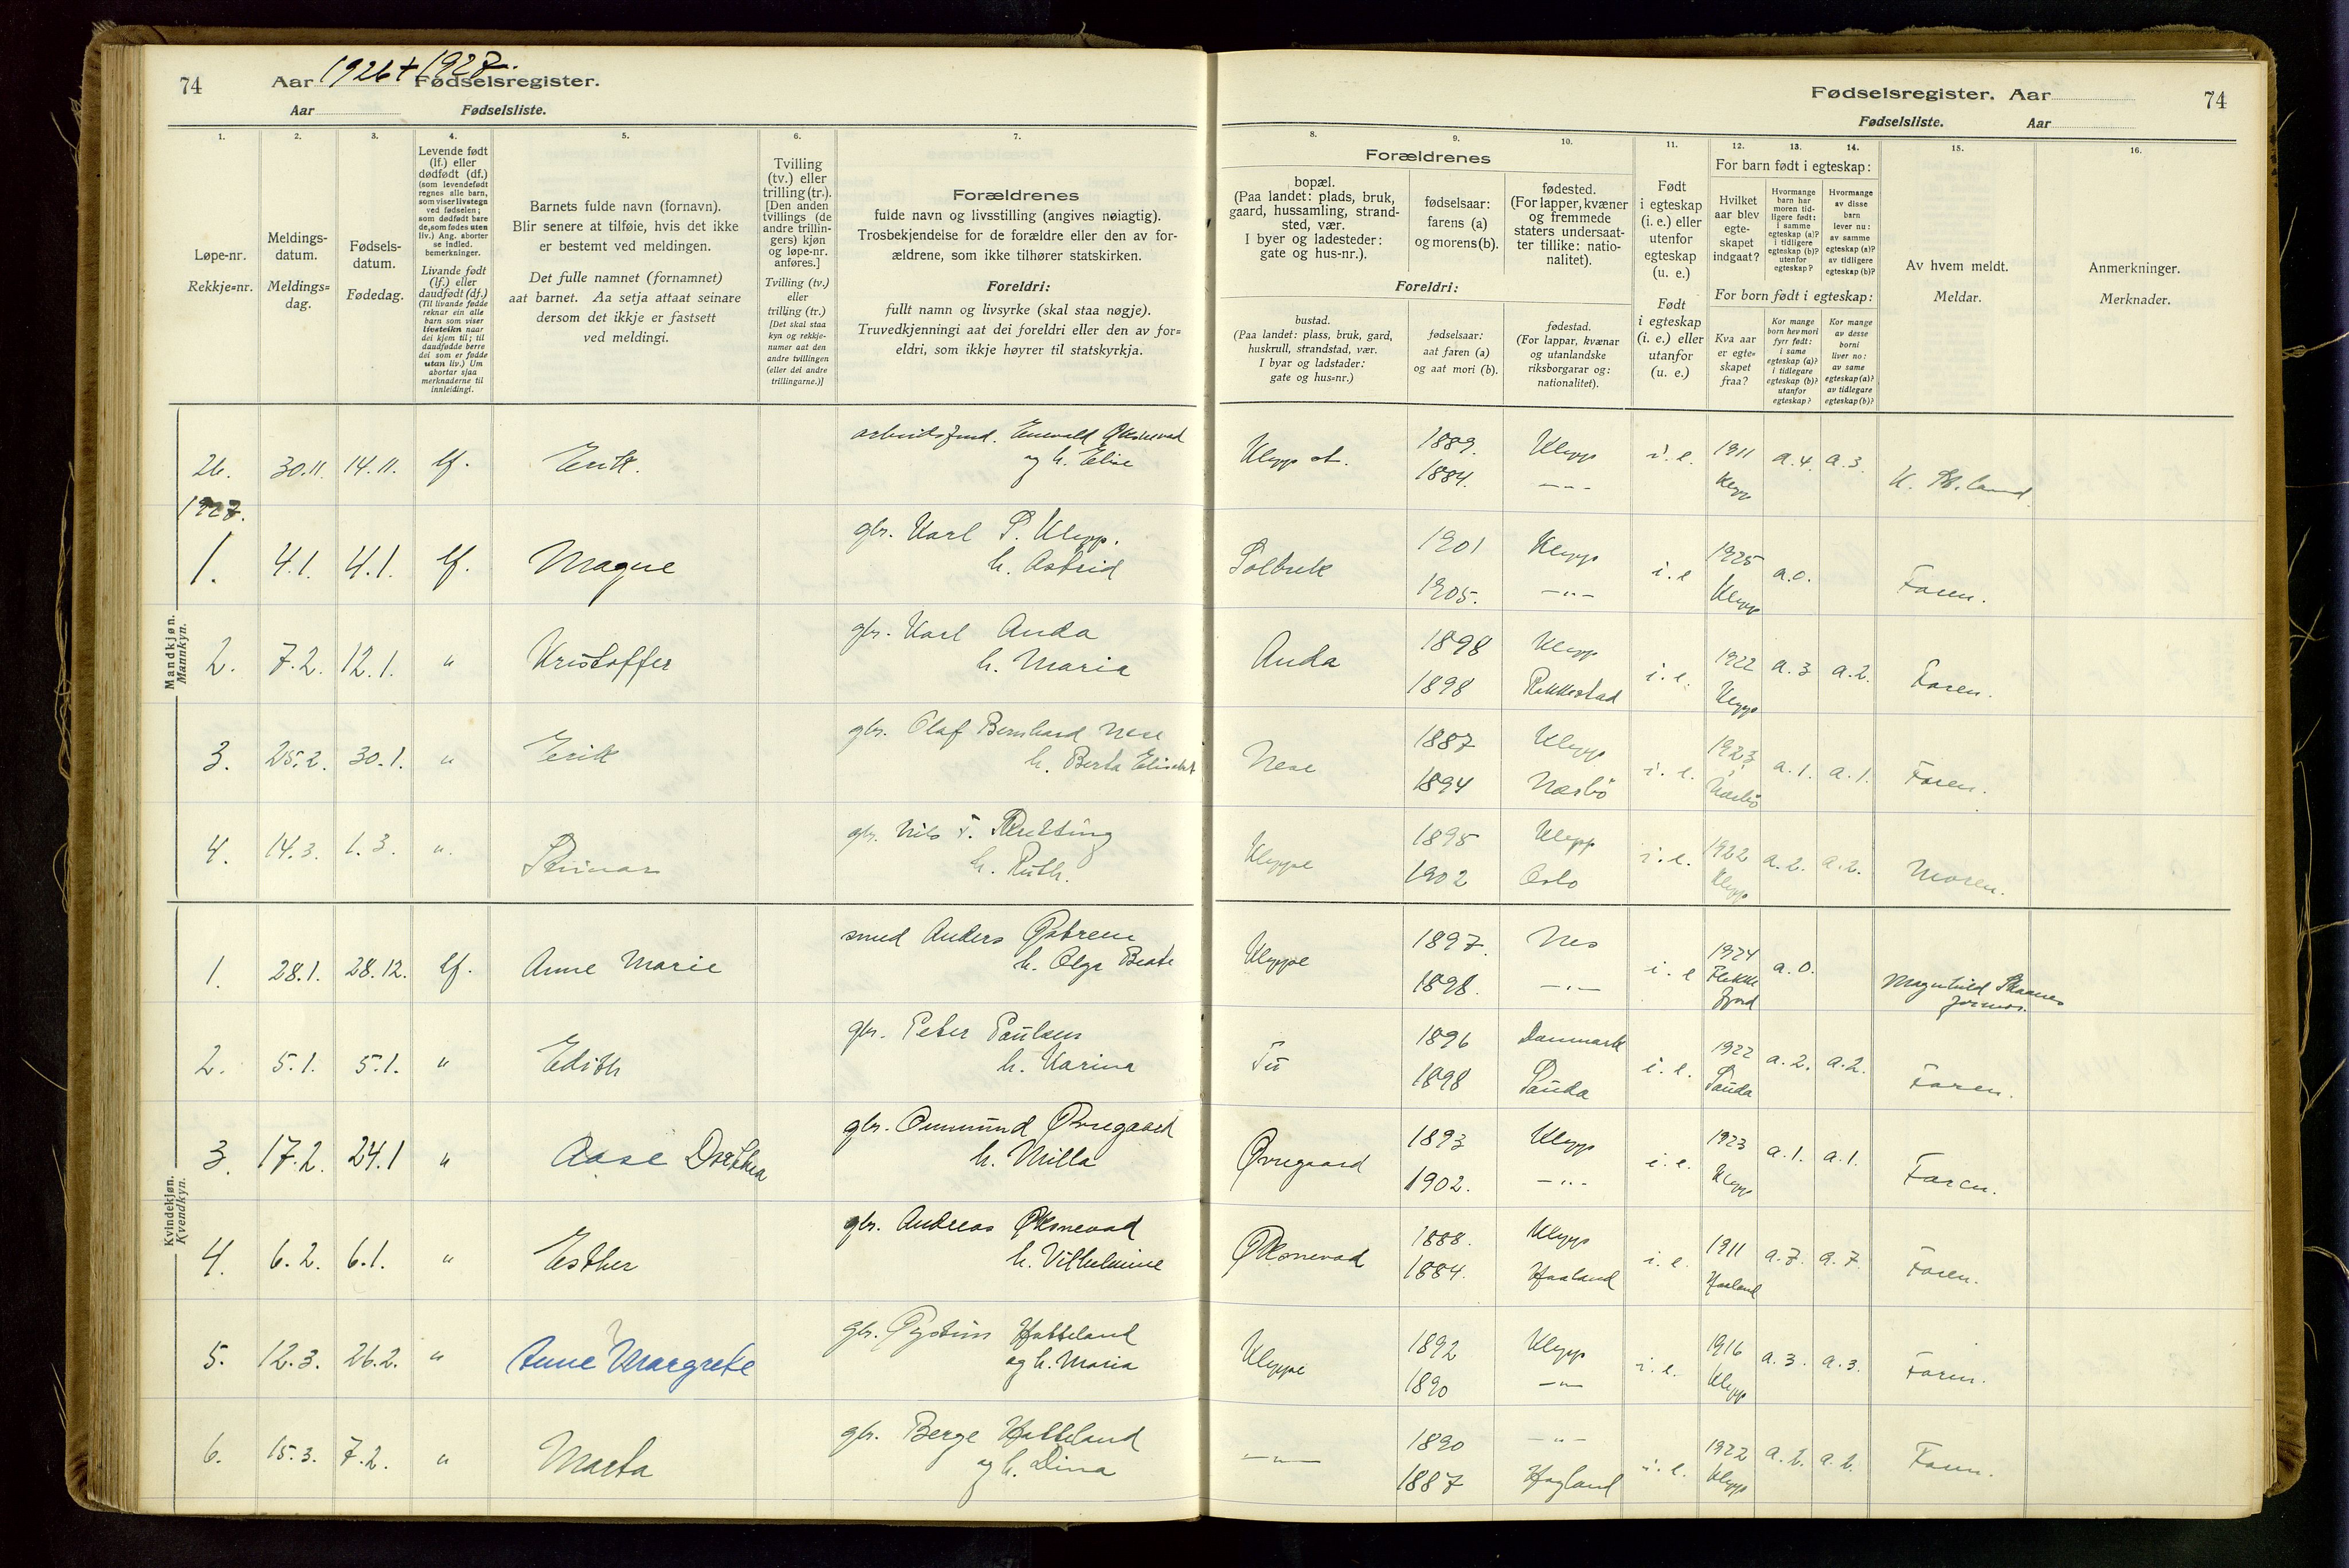 74 Aar 1926 + 1927. Fødselsregister.
Aar Fødselsliste.
Fødselsregister. Aar 74
Fødselsliste. Aar
1. 2. 3. 4. 5. 6. 7. 8. 9. 10. 11. 12. 13. 14. 15. 16.
Løpe-nr.
Rekkje=nr.
Meldings-
datum.
Meldings=
dag.
Fødsels-
datum.
Fødedag.
Levende født
(lf.) eller
dødfødt (df.)
(som levendefødt
regnes alle barn,
som viser livstegn
ved fødselen;
som dødfødt bare
de, som fødes uten
liv.) Ang. aborter
se indled.
bemerkninger.
Livande født
(lf.) eller
daudfødt (df.)
(Til livande fødde
reknar ein alle
barn som viser
livsteikn naar
dei kjem til; til
daudfødde berre
dei som er fødde
utan liv.) Um
abortar sjaa
merknaderne til
innleidingi.
Barnets fulde navn (fornavn).
Blir senere at tilføie, hvis det ikke
er bestemt ved meldingen.
Det fulle namnet (fornamnet)
aat barnet. Aa setja attaat seinare
dersom det ikkje er fastsett
ved meldingi.
Tvilling
(tv.) eller
trilling (tr.).
[Den anden
tvillings (de
andre trillin-
gers) kjøn
og løpe-nr.
anføres.]
Tvilling (tv.)
eller
trilling (tr.)
[Det skal staa
kyn og rekkje-
numer aat den
andre tvillingen
(eller dei andre
trillingarne.)]
Forældrenes
fulde navn og livsstilling (angives nøiagtig).
Trosbekjendelse for de forældre eller den av for-
ældrene, som ikke tilhører statskirken.
Foreldri:
fullt namn og livsyrke (skal staa nøgje).
Truvedkjenningi aat dei foreldri eller den av for=
eldri, som ikkje høyrer til statskyrkja.
Forældrenes
bopæl.
(Paa landet: plads, bruk,
gaard, hussamling, strand-
sted, vær.
I byer og ladesteder:
gate og hus-nr.).
fødselsaar:
farens (a)
og morens (b).
fødested.
(For lapper, kvæner
og fremmede
staters undersaat-
ter tillike: natio-
nalitet).
Foreldri:
bustad.
(Paa landet: plass, bruk, gard,
huskrull, strandstad, vær.
I byar og ladstader:
gate og hus=nr.)
fødselsaar:
aat faren (a)
og aat mori (b).
fødestad.
(For lappar, kvænar
og utanlandske
riksborgarar og:
nationalitet).
Født
i egteskap
(i. e.) eller
utenfor
egteskap
(u. e.)
Født
i egteskap
(i. e.) eller
utanfor
(u. e.)
For barn født i egteskap:
Hvilket
aar blev
egte-
skapet
indgaat?
Hvormange
barn har
moren tid-
ligere født:
i samme
egteskap (a)?
i tidligere
egteskap (b)?
utenfor
egteskap?
Hvormange
av disse
barn
lever nu:
av samme
egteskap (a)?
av tidligere
egteskap (b)?
For born født i egteskap:
Kva aar
er egte=
skapet
fraa?
Kor mange
born hev mori
fyrr født:
i same
egteskap (a)?
i tidlegare
egteskap (b)?
utanfor
egteskap?
Kor mange
av desse
borni
liver no:
av same
egteskap (a)?
av tidlegare
egteskap (b)?
Av hvem meldt.
Meldar.
Anmerkninger.
Merknader.
Mandkjøn.
Mannkyn.
26. 30.11. 14.11. lf. Erik. og h. Elise Klepp st. 1889. 1884. Klepp — " — i. e. 1911 Klepp a. 4. a. 3.
1927.
1. 4.1. 4.1. lf. Magne gbr. Karl S. Klepp. h. Astrid Solbrek 1901 1905. Klepp — " — i. e 1925 Klepp a. 0. Faren.
2. 7.2. 12.1. " Kristoffer gbr. Karl Anda h. Maria Anda 1898 1898 Klepp Rakkestad i. e. 1922 Klepp a. 3 a. 2. Faren.
3. 25.2. 30.1. " Erik gbr. Olaf Bernhard Nese h. Berta Elisabet Nese 1887 1894 Klepp Nærbø i. e. 1923 Nærbø a. 1. a. 1. Faren.
4. 14.3. 1.3. " Steinar gbr. Nils h. Ruth. Kleppe 1895 1902 Klepp Oslo i. e. 1922 Klepp a. 2. a. 2. Moren.
Kvindekjøn.
Kvendkyn.
1. 28.1. 28.12. lf. Anne Marie smed Anders Østrem h. Olga Beate Kleppe 1897. 1898. Nes — " — i. e 1924 Flekkefjord a. 0. Magnhild Skaanes jormor.
2. 5.1. 5.1. " Edith gbr. Peter Paulsen h. Karina Tu 1896 1898 Danmark Sauda i. e. 1922 Sauda a. 2. a. 2. Faren.
3. 17.2. 24.1 " Aase Dorthea gbr. Ommund Øvregaard h. Milla Øvregaard 1893 1902. Klepp — " — i. e. 1923 Klepp a. 1. a. 1. Faren.
4. 6.2. 6.1. " Esther gbr. Andreas Øksnevad h. Vilhelmine Øksnevad 1888. 1884. Klepp Haaland i. e. 1911 Haaland a. 7. a. 7. Faren.
5. 12.3. 26.2. " Anne Margrete gbr. Øystein Hatteland og h. Maria Kleppe 1892 1890 Klepp — " — i. e. 1916 Klepp a. 3. a. 3. Faren.
6. 15.3. 7.2. " Marta gbr. Berge Hatteland og h. Dina — " — 1890 1887 — " — Høyland i. e. 1922 Klepp a. 2. a. 2. Faren.